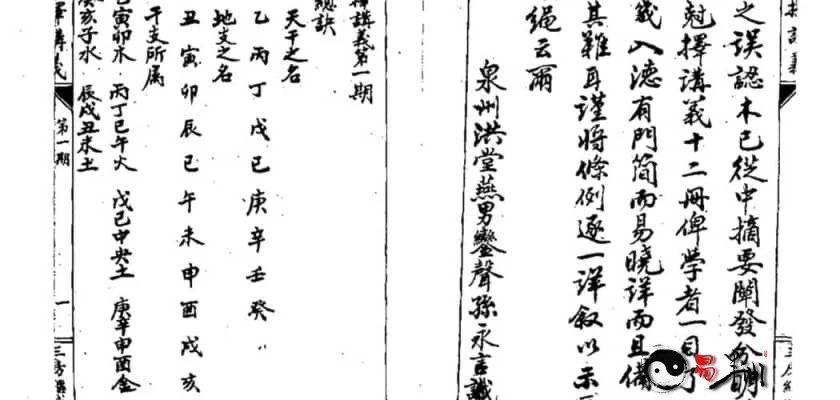 之誤認本已從中摘要闡發分
尅擇講義十二冊俾學者一目了
義入德有門簡而易曉詳而且備
其難耳謹將條例逐一詳叙以示
繩云爾
泉州洪堂燕男鑾聲孫永言識
擇講義第一期
總訣
天干之名
乙丙丁戊己庚辛壬癸
地支之名
丑寅卯辰巳午未申酉戌亥
干支所属
乙寅卯木 丙丁巳午火 戊己中央土 庚辛申酉金
癸亥子水 辰戌丑未土
擇講義
第一期
一